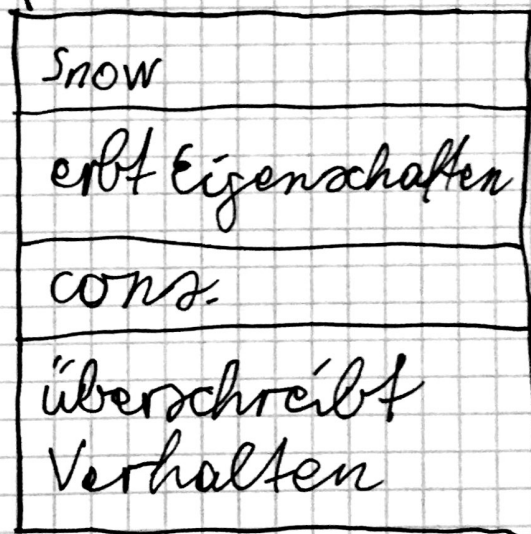 Snow
erbt Eigenschaften
cons.
überschreibt
Verhalten